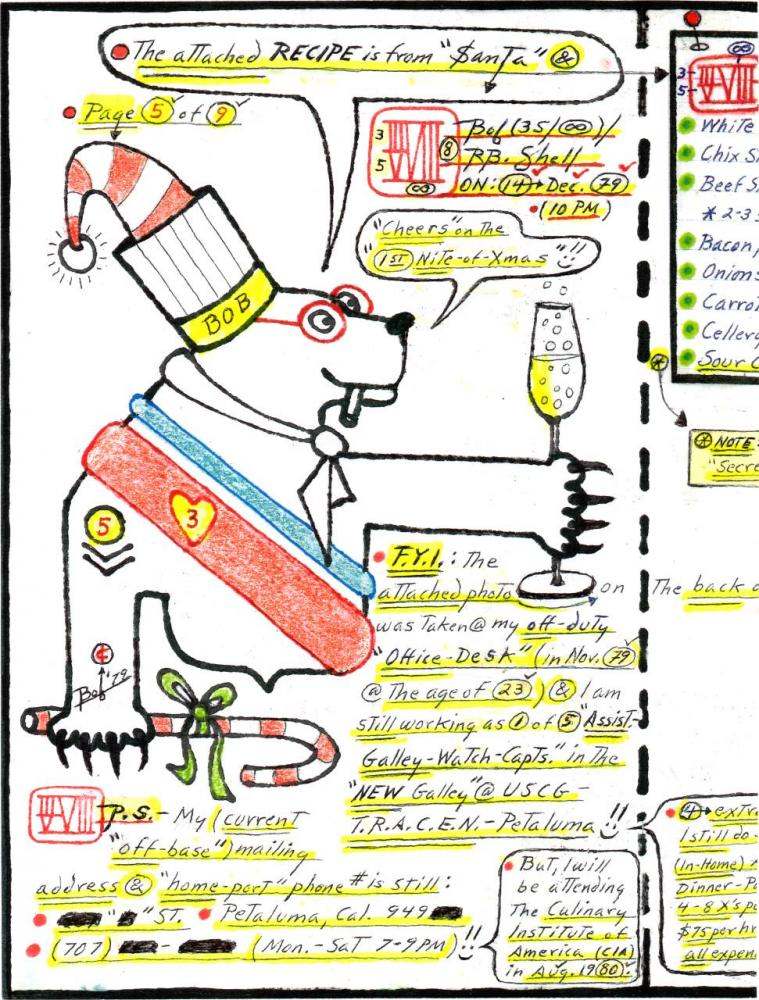 The attached RECIPE is from "$anta" &
Page 5 of 9
3
5
V-VIII
8
∞
Bob (35/∞)/
RB. Shell
ON: 14 Dec. 79
(10 PM)
"Cheers" on the
"1ST Nite-of-Xmas"!!
BOB
5
3
Bob '79
F.Y.I.: The
attached photo on The back
was Taken @ my off-duty
"Office-Desk" (in Nov. 79
@ The age of 23) & I am
still working as 1 of 5 "Assist.-
Galley-Watch-Capts." in The
"NEW Galley" @ USCG-
T.R.A.C.E.N.-Petaluma!!
V-VIII
P.S.- My (current
"off-base") mailing
address & "home-port" phone # is still:
" " ST. Petaluma, Cal. 949
(707) - (Mon.-Sat 7-9PM)!!
But, I will
be attending
The Culinary
Institute of
America (CIA)
in Aug. 1980.
∞
3-
5-
V-VIII
White
Chix
Beef
* 2-3
Bacon,
Onions
Celler
Sour
* NOTE:
"Secre
4 extra
I still do-
(In-Home)
Dinner-P
4-8 X's p
$75 per hr
all expen